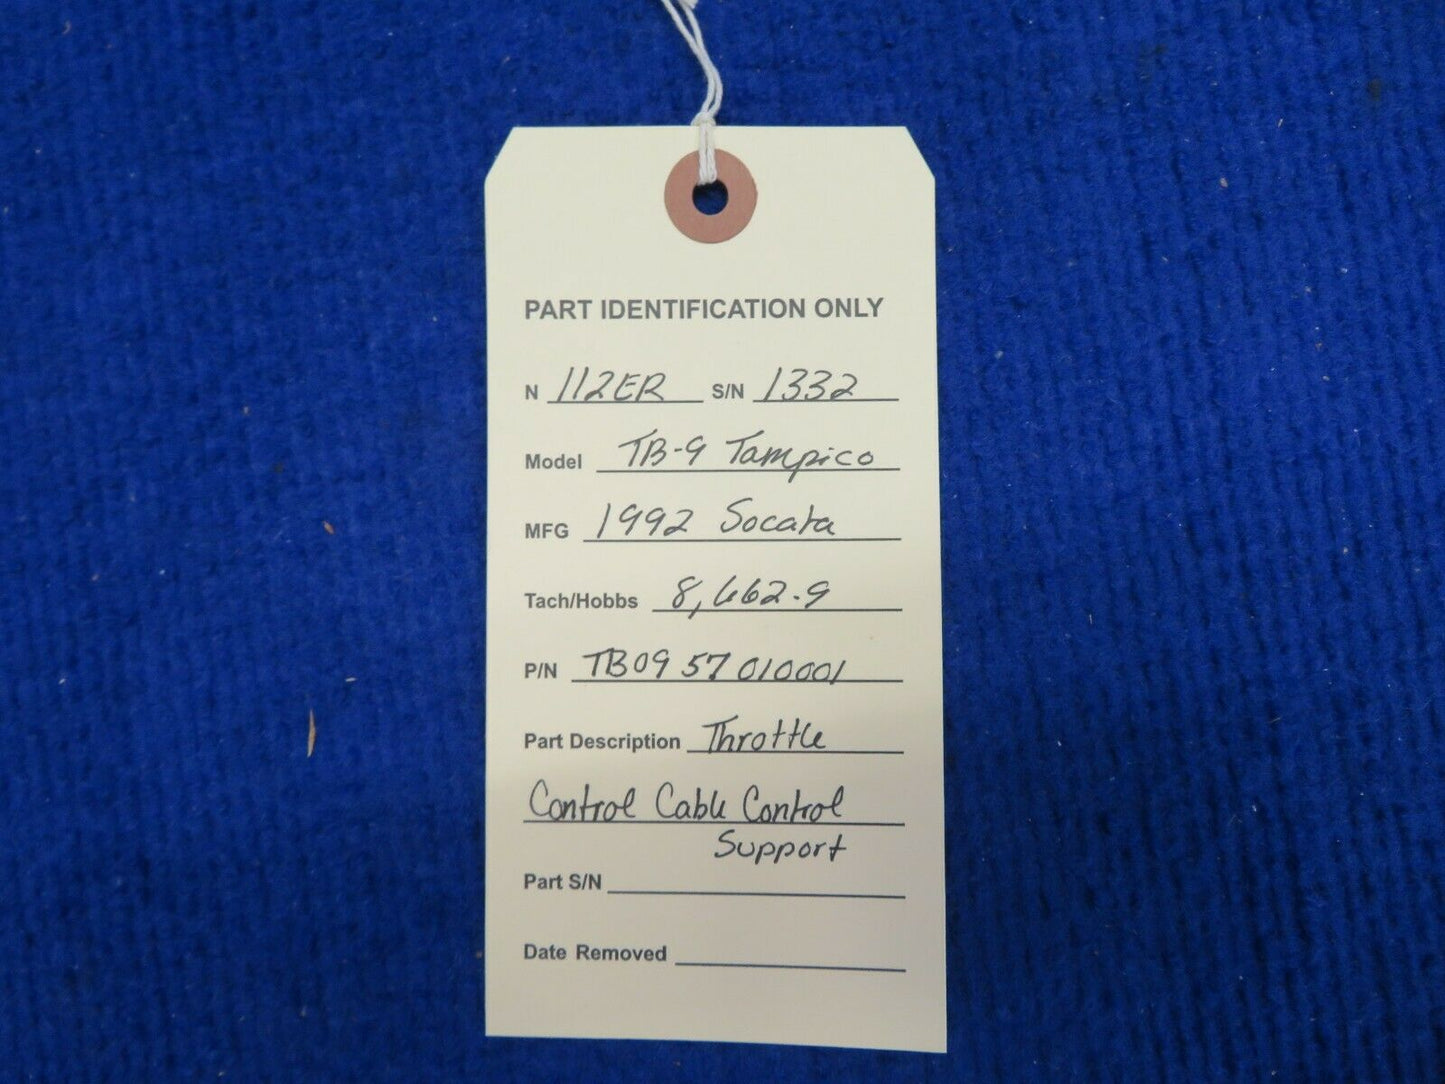 PART IDENTIFICATION ONLY
N 112ER S/N 1332
Model TB-9 Tampico
MFG 1992 Socata
Tach/Hobbs 8,662.9
P/N TB09 57 010001
Part Description Throttle
Control Cable Control
Support
Part S/N
Date Removed